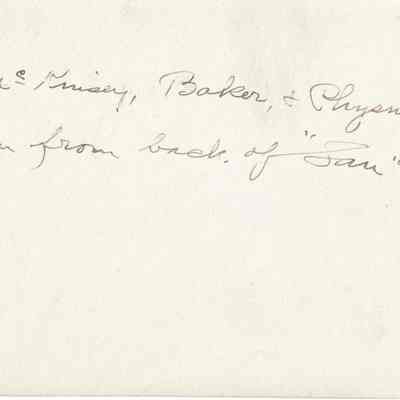 Mc Kinsey, Baker, & Phyen
from back of "San"